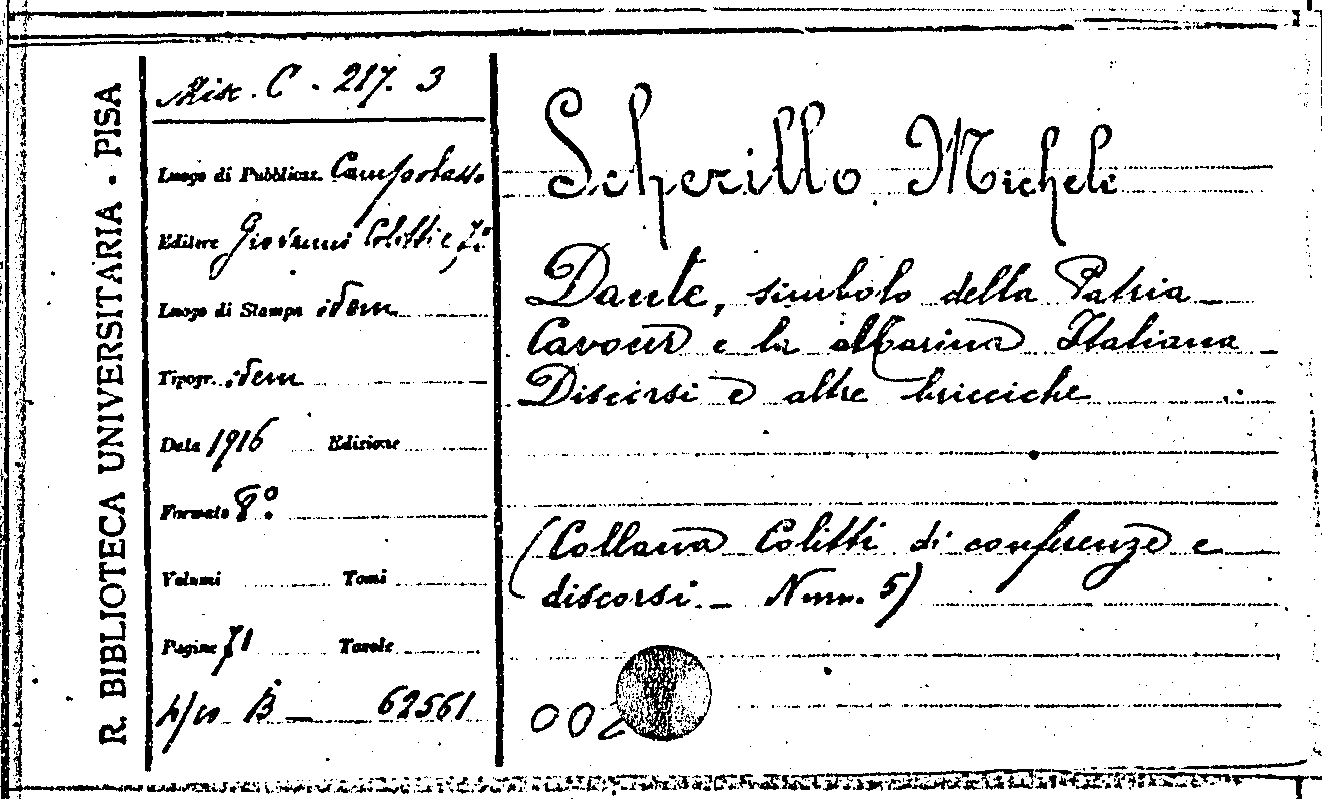 R. BIBLIOTECA UNIVERSITARIA - PISA
Misc. C. 217. 3
Luogo di Pubblicaz. Campobasso
Editore Giovanni Colitti e Fi°
Luogo di Stampa idem
Tipogr. idem
Data 1916 Edizione
Formato 8°
Volumi Tomi
Pagine 71 Tavole
B 62561
Scherillo Michele
Dante, simbolo della Patria
Cavour e la Marina Italiana
Discorsi e altre bricciche
(Collana Colitti di conferenze e
discorsi - Num. 5)
002